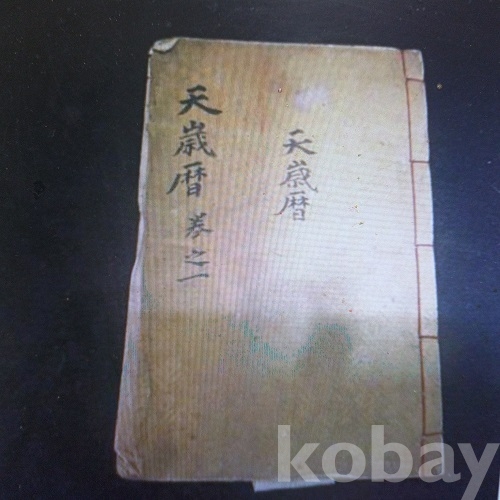 天歲曆 卷之一
天歲曆
kobay